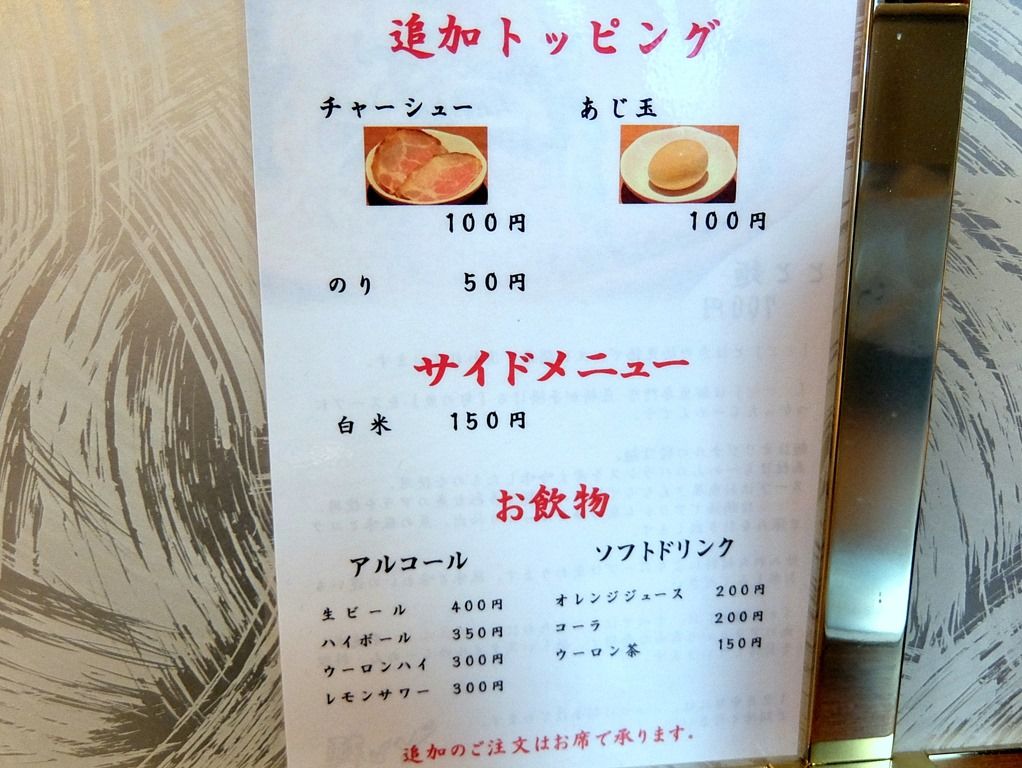 追加トッピング
チャーシュー あじ玉
100円 100円
のり 50円
サイドメニュー
白米 150円
お飲物
アルコール ソフトドリンク
生ビール 400円 オレンジジュース 200円
ハイボール 350円 コーラ 200円
ウーロンハイ 300円 ウーロン茶 150円
レモンサワー 300円
追加のご注文はお席で承ります。